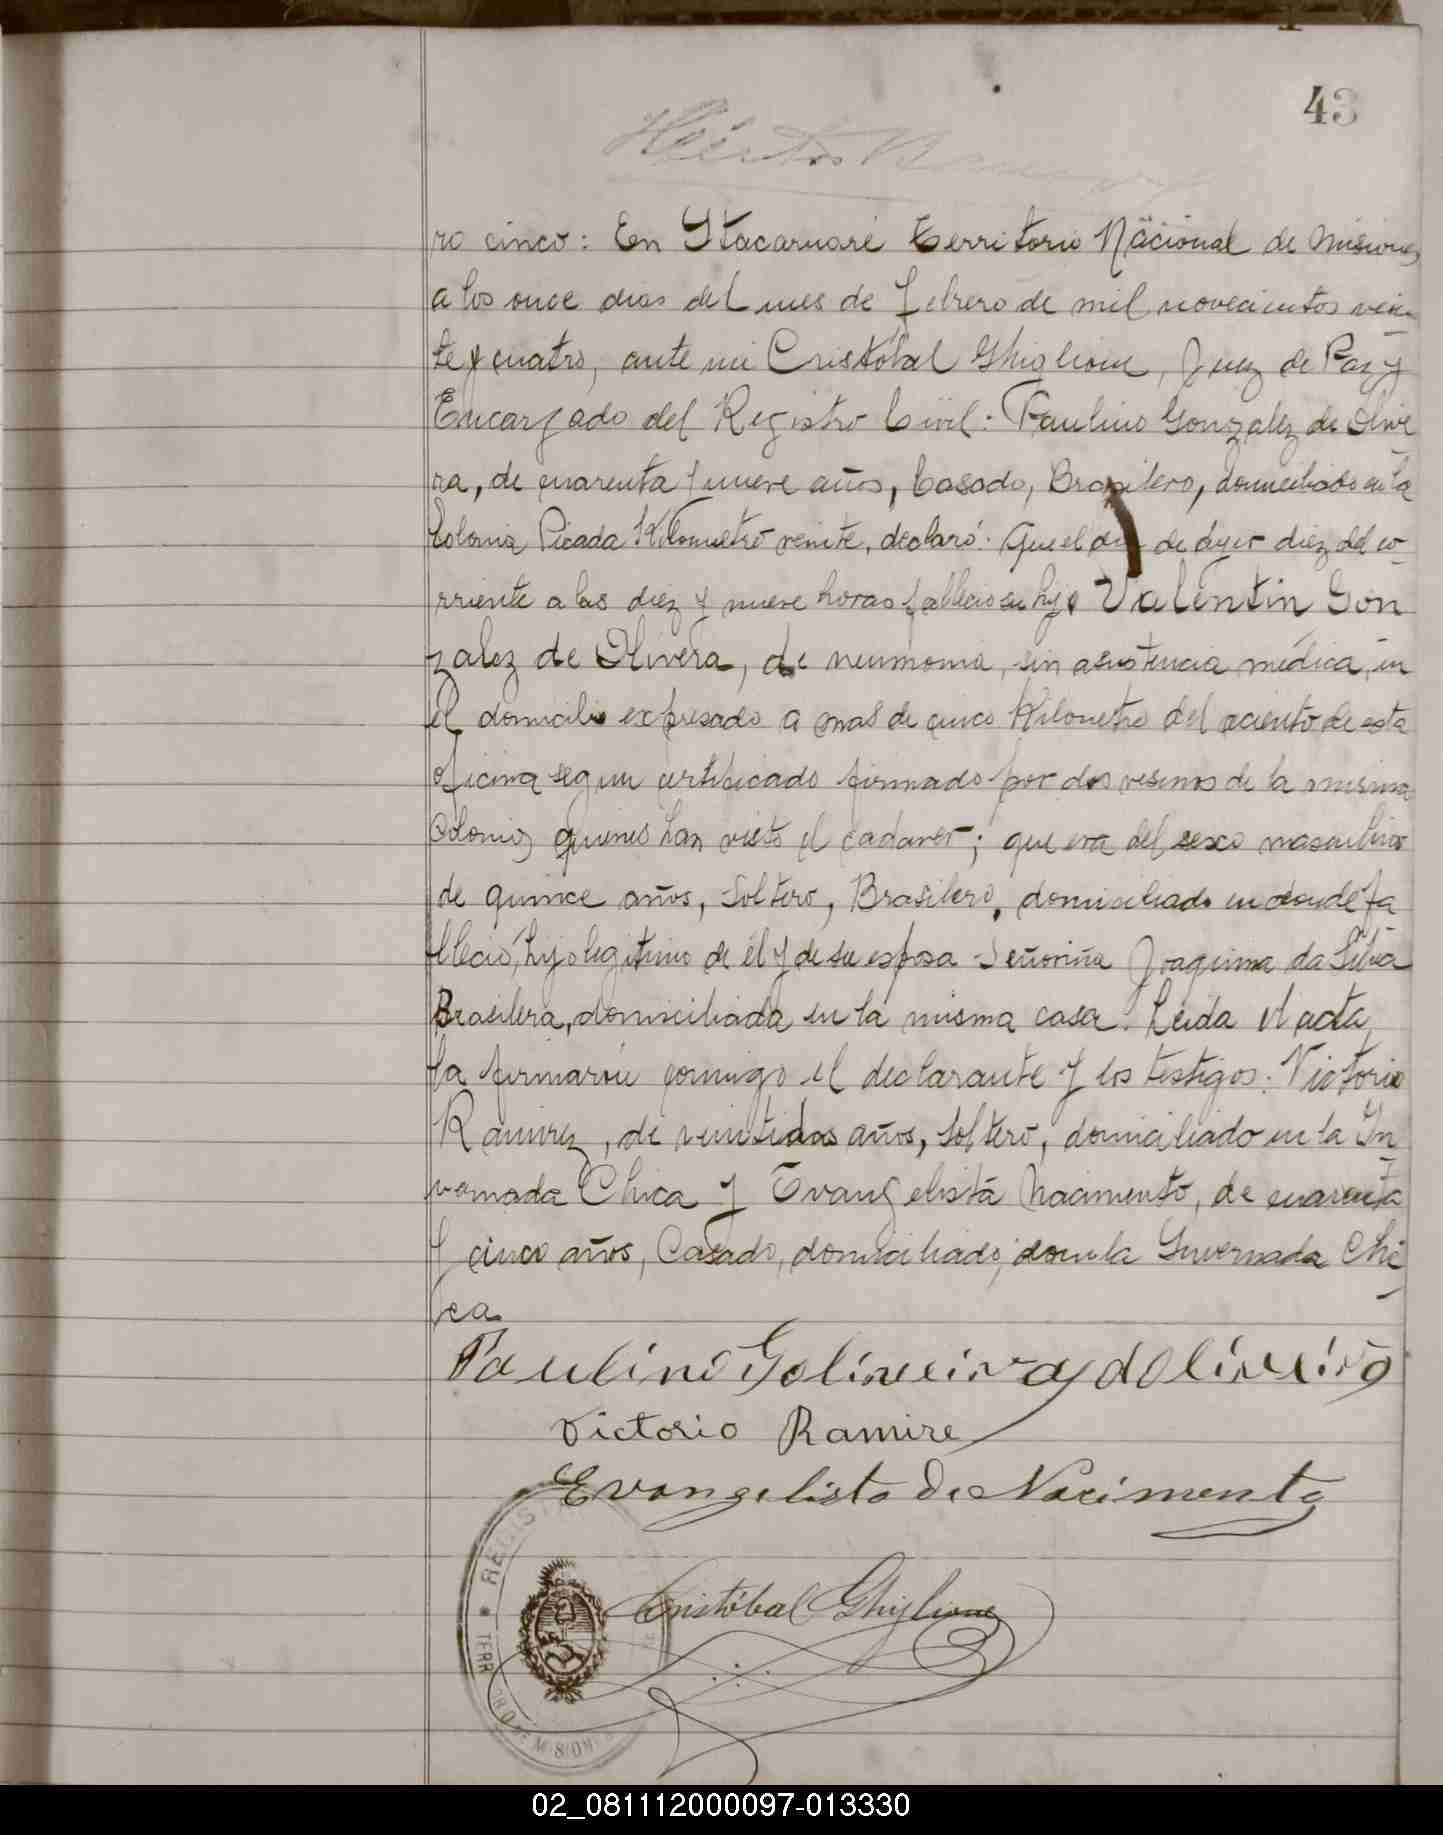 43
ro cinco: En Itacaruaré Territorio Nacional de Misiones
a los once dias del mes de febrero de mil novecientos vein
te y cuatro, ante mi Cristóbal Ghiglione, Juez de Paz y
Encargado del Registro Civil: Paulino Gonzalez de Olive
ra, de cuarenta y nueve años, Casado, Brasilero, domiciliado en la
Colonia Picada Kilometro veinte, declaró: Que el dia de ayer diez del co-
rriente a las diez y nueve horas fallecio su hijo Valentin Gon
zalez de Olivera, de neumonia, sin asistencia médica, en
el domicilio expresado a mas de cinco Kilometro del aciento de esta
oficina segun certificado firmado por dos vesinos de la misma
Colonia, quienes han visto el cadaver; que era del sexo masculino
de quince años, Soltero, Brasilero, domiciliado en donde fa
llecio, hijo legitimo de él y de su esposa Señoriña Joaquina da Silva
Brasilera, domiciliada en la misma casa. Leida el acta,
la firmaron conmigo el declarante y los testigos: Victorio
Ramirez, de veintidos años, Soltero, domiciliado en la In
vernada Chica y Evangelista Nacimento, de cuarenta
y cinco años, Casado, domiciliado, en la Invernada Chi
ca
Paulino
Victorio Ramire
Evangelisto de Nacimento
Cristóbal Ghiglione
REGIS
TERR
MISIONES
02_081112000097-013330